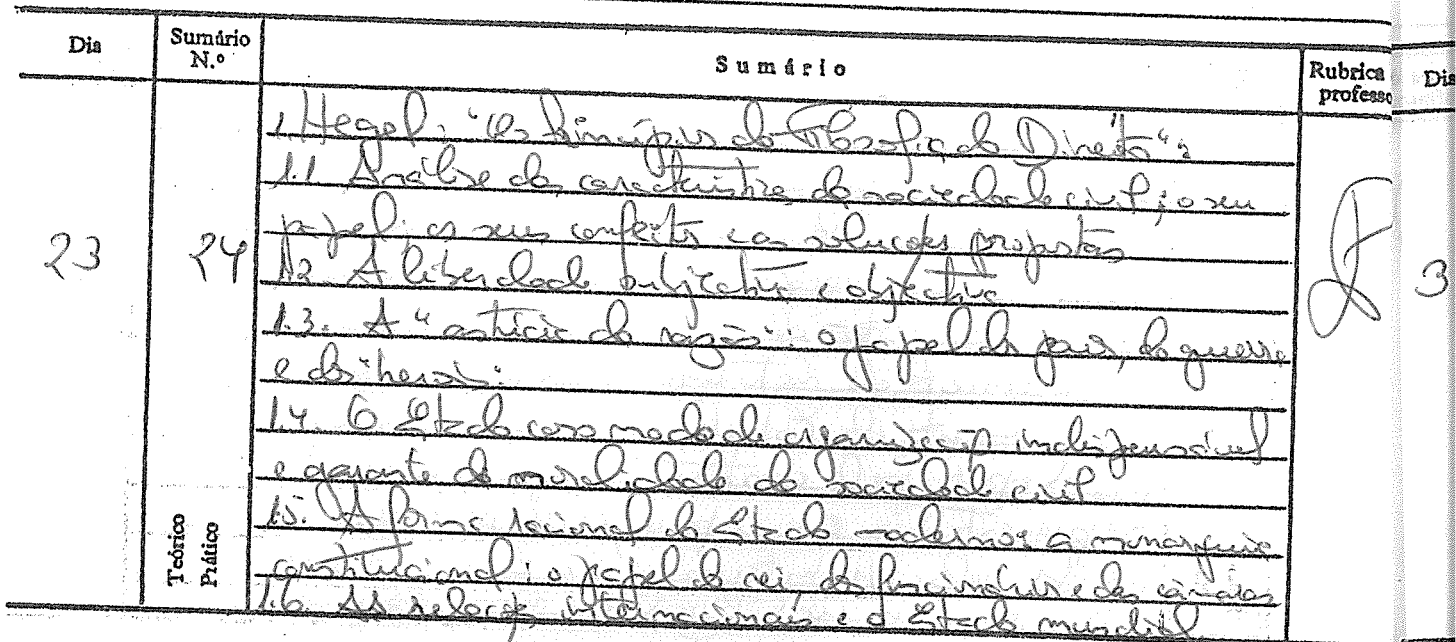 Dia Sumário N.º Sumário Rubrica professo Dia
1. Hegel: "Os Princípios da Filosofia do Direito":
1.1 Análise das características da sociedade civil; o seu
papel; os seus conflitos e as soluções propostas
23 24 1.2. A liberdade subjectiva e objectiva 3
1.3. A "astúcia da razão": o papel da paz, da guerra
e dos heróis.
1.4. O Estado como modo de organização indispensável
e garante da moralidade da sociedade civil
1.5. A forma racional do Estado moderno: a monarquia
constitucional: o papel do rei, dos funcionários e das câmaras
1.6. As relações internacionais e o Estado mundial
Teórico
Prático